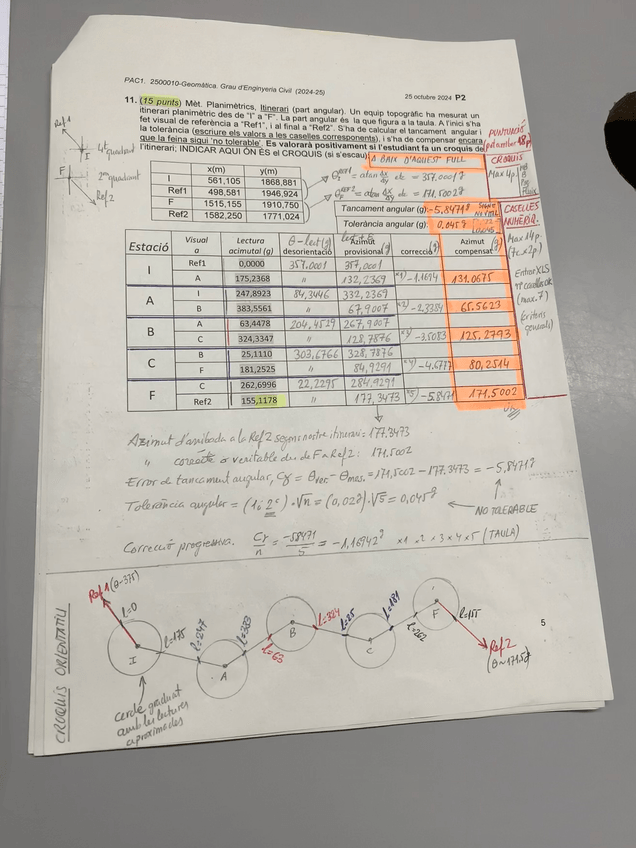 PAC1. 2500010-Geomàtica. Grau d'Enginyeria Civil (2024-25)
25 octubre 2024 P2
11. (15 punts) Mèt. Planimètrics, Itinerari (part angular). Un equip topogràfic ha mesurat un
itinerari planimètric des de "I" a "F". La part angular és la que figura a la taula. A l'inici s'ha
fet visual de referència a "Ref1", i al final a "Ref2". S'ha de calcular el tancament angular i
la tolerància (escriure els valors a les caselles corresponents), i s'ha de compensar encara
que la feina sigui 'no tolerable'. Es valorarà positivament si l'estudiant fa un croquis de
l'itinerari; INDICAR AQUI ON ÉS el CROQUIS (si s'escau):
A BAIX D'AQUEST FULL
PUNTUACIÓ
CROQUIS
Max 4p.
Ref1
4t quadrant
I
F
2on quadrant
Ref2
x(m) y(m)
I 561,105 1868,881
Ref1 498,581 1946,924
F 1515,155 1910,750
Ref2 1582,250 1771,024
= 357,0001g
= 171,5002g
Tancament angular (g): -5,8471g
Tolerància angular (g): 0,045g
CASELLES
NUMÈRIQ.
Max 14p.
(7c.x2p.)
Entrar XLS
nº caselles ok
(max. 7)
(criteris
generals)
θ-lect (g) lect+θ
Estació Visual a Lectura acimutal (g) desorientació Azimut provisional (g) correcció (g) Azimut compensat (g)
I Ref1 0,0000 357,0001 357,0001
A 175,2368 " 132,2369 x1) -1.1694 131.0675
A I 247,8923 84,3446 332,2369
B 383,5561 " 67,9007 x2) -2.3384 65.5623
B A 63,4478 204,4529 267,9007
C 324,3347 " 128,7876 x3) -3.5083 125.2793
C B 25,1110 303,6766 328,7876
F 181,2525 " 84,9291 x4) -4.6777 80,2514
F C 262,6996 22,2295 284,9291
Ref2 155,1178 " 177,3473 x5) -5.8471 171.5002
Azimut d'arribada a la Ref2 segons nostre itinerari = 177.3473
" correcte o veritable des de F a Ref2: 171.5002
Error de tancament angular, Cγ = θver. - θmes. = 171,5002 - 177.3473 = -5,8471g
Tolerància angular = (1 i 2c)·√n = (0,02g)·√5 = 0,045g
NO TOLERABLE
Correcció progressiva. Cγ/n = -5,8471/5 = -1,16942g x1 x2 x3 x4 x5 (TAULA)
CROQUIS ORIENTATIU
Ref1 (θ~375)
l=0
I
l=175
l=247
A
l=383
l=63
B
l=324
l=25
C
l=181
l=262
F
l=155
Ref2
(θ~171.5g)
cercle graduat
amb les lectures
aproximades
5